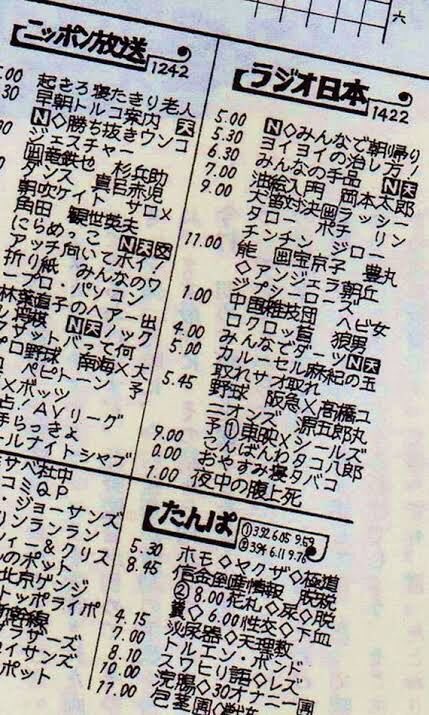 六
ニッポン放送
1242
5.00 起きろ寝たきり老人
30 早朝トルコ案内 天
N◇勝ち抜きウンコ
ジェスチャー
画竜鉄也 杉兵助
ダンス 真呂赤児
朝吹ケイト サロメ
角田 観世英夫
にらめっこ N天文
アッチ向いてホイ!
折り紙 みんなのワ
ープロ・パソコン
林葉直子のヘアー出
し将棋 N天ノック
クザットバーで何
プロ野球 南海×大
ペピトーン 予
×ボッツ
占!AVリーグ
手らっきょ
ールナイトシャブ
ラジオ日本
1422
5.00 N◇みんなで朝帰り
5.30 ヨイヨイの治し方!
6.30 みんなの手品 N天
7.00 油絵入門 岡本太郎
9.00 犬留対決画ラッシー
タロー ポチ リン
チンチン ジロー
11.00 能 画宝京子 豊丸
◇アンジェラ朝丘
ジプシーローズ
1.00 中国雑技団 ヘビ女
ロクロッ首 狼男
4.00 みんなでダーツN天
5.00 カルーセル麻紀の玉
取れサオ取れ
5.45 野球 阪急×高橋ユ
ニオンズ 源五郎丸
予①東映×シールズ
9.00 こんばんわタコ八郎
0.00 おやすみ寝タバコ
1.00 夜中の腹上死
サベ社中
コミQP
・ジョーサンズ
リンランラン
ィー&クリス
のポット
北京ゲンジ
トッポライポ
新幹線
ブラザーズ
イサンズ
ポット
たんぱ
①3.92 6.05 9.59
②3.94 6.11 9.76
5.30 ホモ◇ヤクザ◇極道
8.45 信金倒産情報 脱税
②8.00花札◇尿◇脱
糞◇6.00性交◇下血
4.15 泌尿器◇天理教
7.00 トルエン・ボンド
8.10 スワヒリ語◇レズ
10.00 浣腸◇30オナニー画
11.00 包茎画◇獣姦